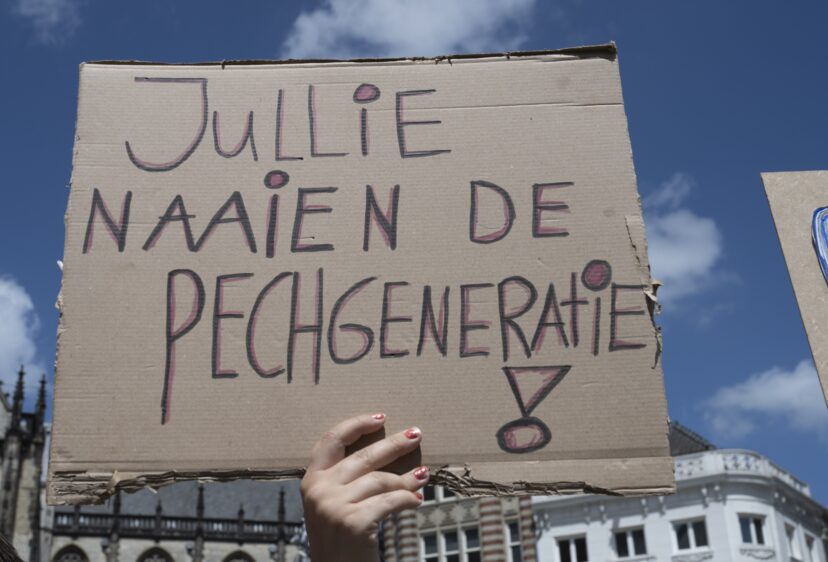 JULLiE
NAAiEN DE
PECHGENERATiE!